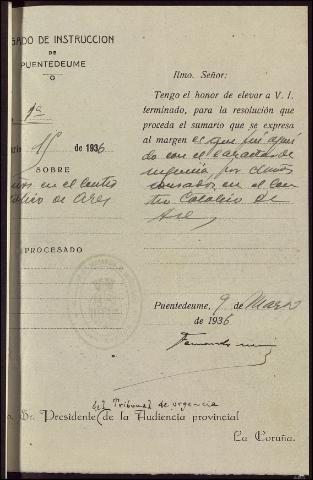 GADO DE INSTRUCCION
DE
PUENTEDEUME
1ª
15 1936
SOBRE
en el Centro
de Ares
PROCESADO
Ilmo. Señor:
Tengo el honor de elevar a V. I.
terminado, para la resolución que
proceda el sumario que se expresa
al margen el que fué
do con el caracter de
urgencia, por daños
causados en el Cen-
tro Católico de
Ares
Puentedeume, 9 de Marzo
de 1936
Fernando
del Tribunal de urgencia
Sr. Presidente de la Audiencia provincial
La Coruña.